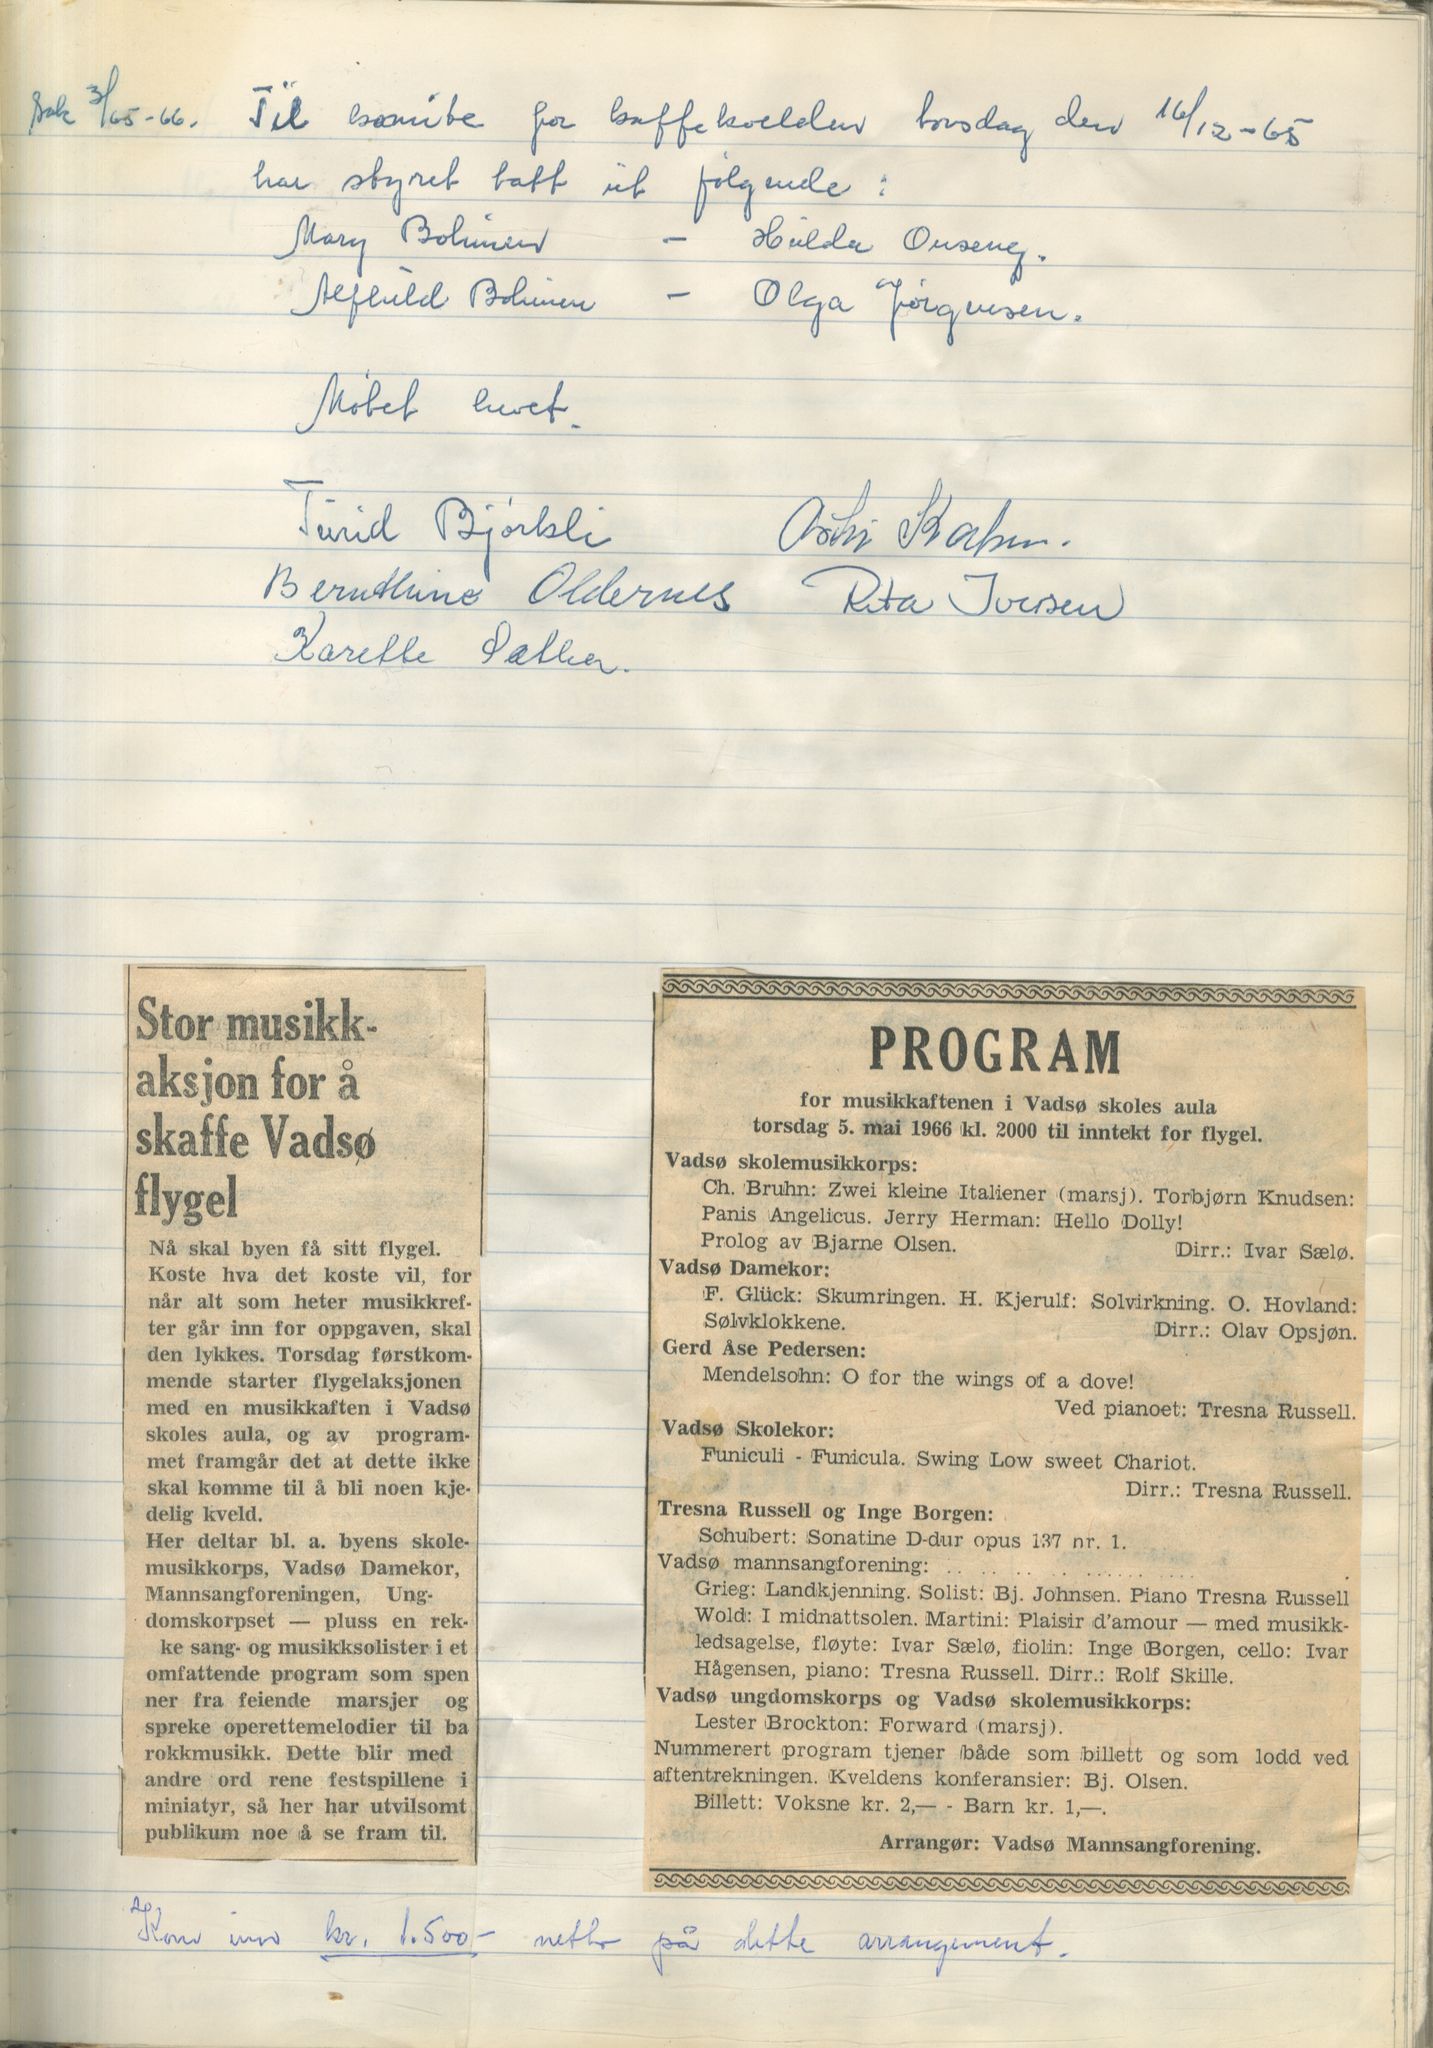 Sak 3/65-66. Til komite for kaffekvelden torsdag den 16/12-65
har styret tatt ut følgende :
Mary Bohinen - Hulda Onseng.
Alfhild Bohinen - Olga Jørgensen.
Møtet hevet.
Turid Bjørkli
Berndthine Oldernes Rita Iversen
Karette Sæther.
Stor musikk-
aksjon for å
skaffe Vadsø
flygel
Nå skal byen få sitt flygel.
Koste hva det koste vil, for
når alt som heter musikkref-
ter går inn for oppgaven, skal
den lykkes. Torsdag førstkom-
mende starter flygelaksjonen
med en musikkaften i Vadsø
skoles aula, og av program-
met framgår det at dette ikke
skal komme til å bli noen kje-
delig kveld.
Her deltar bl. a. byens skole-
musikkorps, Vadsø Damekor,
Mannsangforeningen, Ung-
domskorpset — pluss en rek-
ke sang- og musikksolister i et
omfattende program som spen
ner fra feiende marsjer og
spreke operettemelodier til ba
rokkmusikk. Dette blir med
andre ord rene festspillene i
miniatyr, så her har utvilsomt
publikum noe å se fram til.
PROGRAM
for musikkaftenen i Vadsø skoles aula
torsdag 5. mai 1966 kl. 2000 til inntekt for flygel.
Vadsø skolemusikkorps:
Ch. Bruhn: Zwei kleine Italiener (marsj). Torbjørn Knudsen:
Panis Angelicus. Jerry Herman: Hello Dolly!
Prolog av Bjarne Olsen. Dirr.: Ivar Sælø.
Vadsø Damekor:
F. Glück: Skumringen. H. Kjerulf: Solvirkning. O. Hovland:
Sølvklokkene. Dirr.: Olav Opsjøn.
Gerd Åse Pedersen:
Mendelsohn: O for the wings of a dove!
Ved pianoet: Tresna Russell.
Vadsø Skolekor:
Funiculi - Funicula. Swing Low sweet Chariot.
Dirr.: Tresna Russell.
Tresna Russell og Inge Borgen:
Schubert: Sonatine D-dur opus 137 nr. 1.
Vadsø mannsangforening: .. .. .. .. .. .. ....
Grieg: Landkjenning. Solist: Bj. Johnsen. Piano Tresna Russell
Wold: I midnattsolen. Martini: Plaisir d'amour — med musikk-
ledsagelse, fløyte: Ivar Sælø, fiolin: Inge Borgen, cello: Ivar
Hågensen, piano: Tresna Russell. Dirr.: Rolf Skille.
Vadsø ungdomskorps og Vadsø skolemusikkorps:
Lester Brockton: Forward (marsj).
Nummerert program tjener både som billett og som lodd ved
aftentrekningen. Kveldens konferansier: Bj. Olsen.
Billett: Voksne kr. 2,— - Barn kr. 1,—.
Arrangør: Vadsø Mannsangforening.
Kom inn kr. 1.500,- netto på dette arrangement.